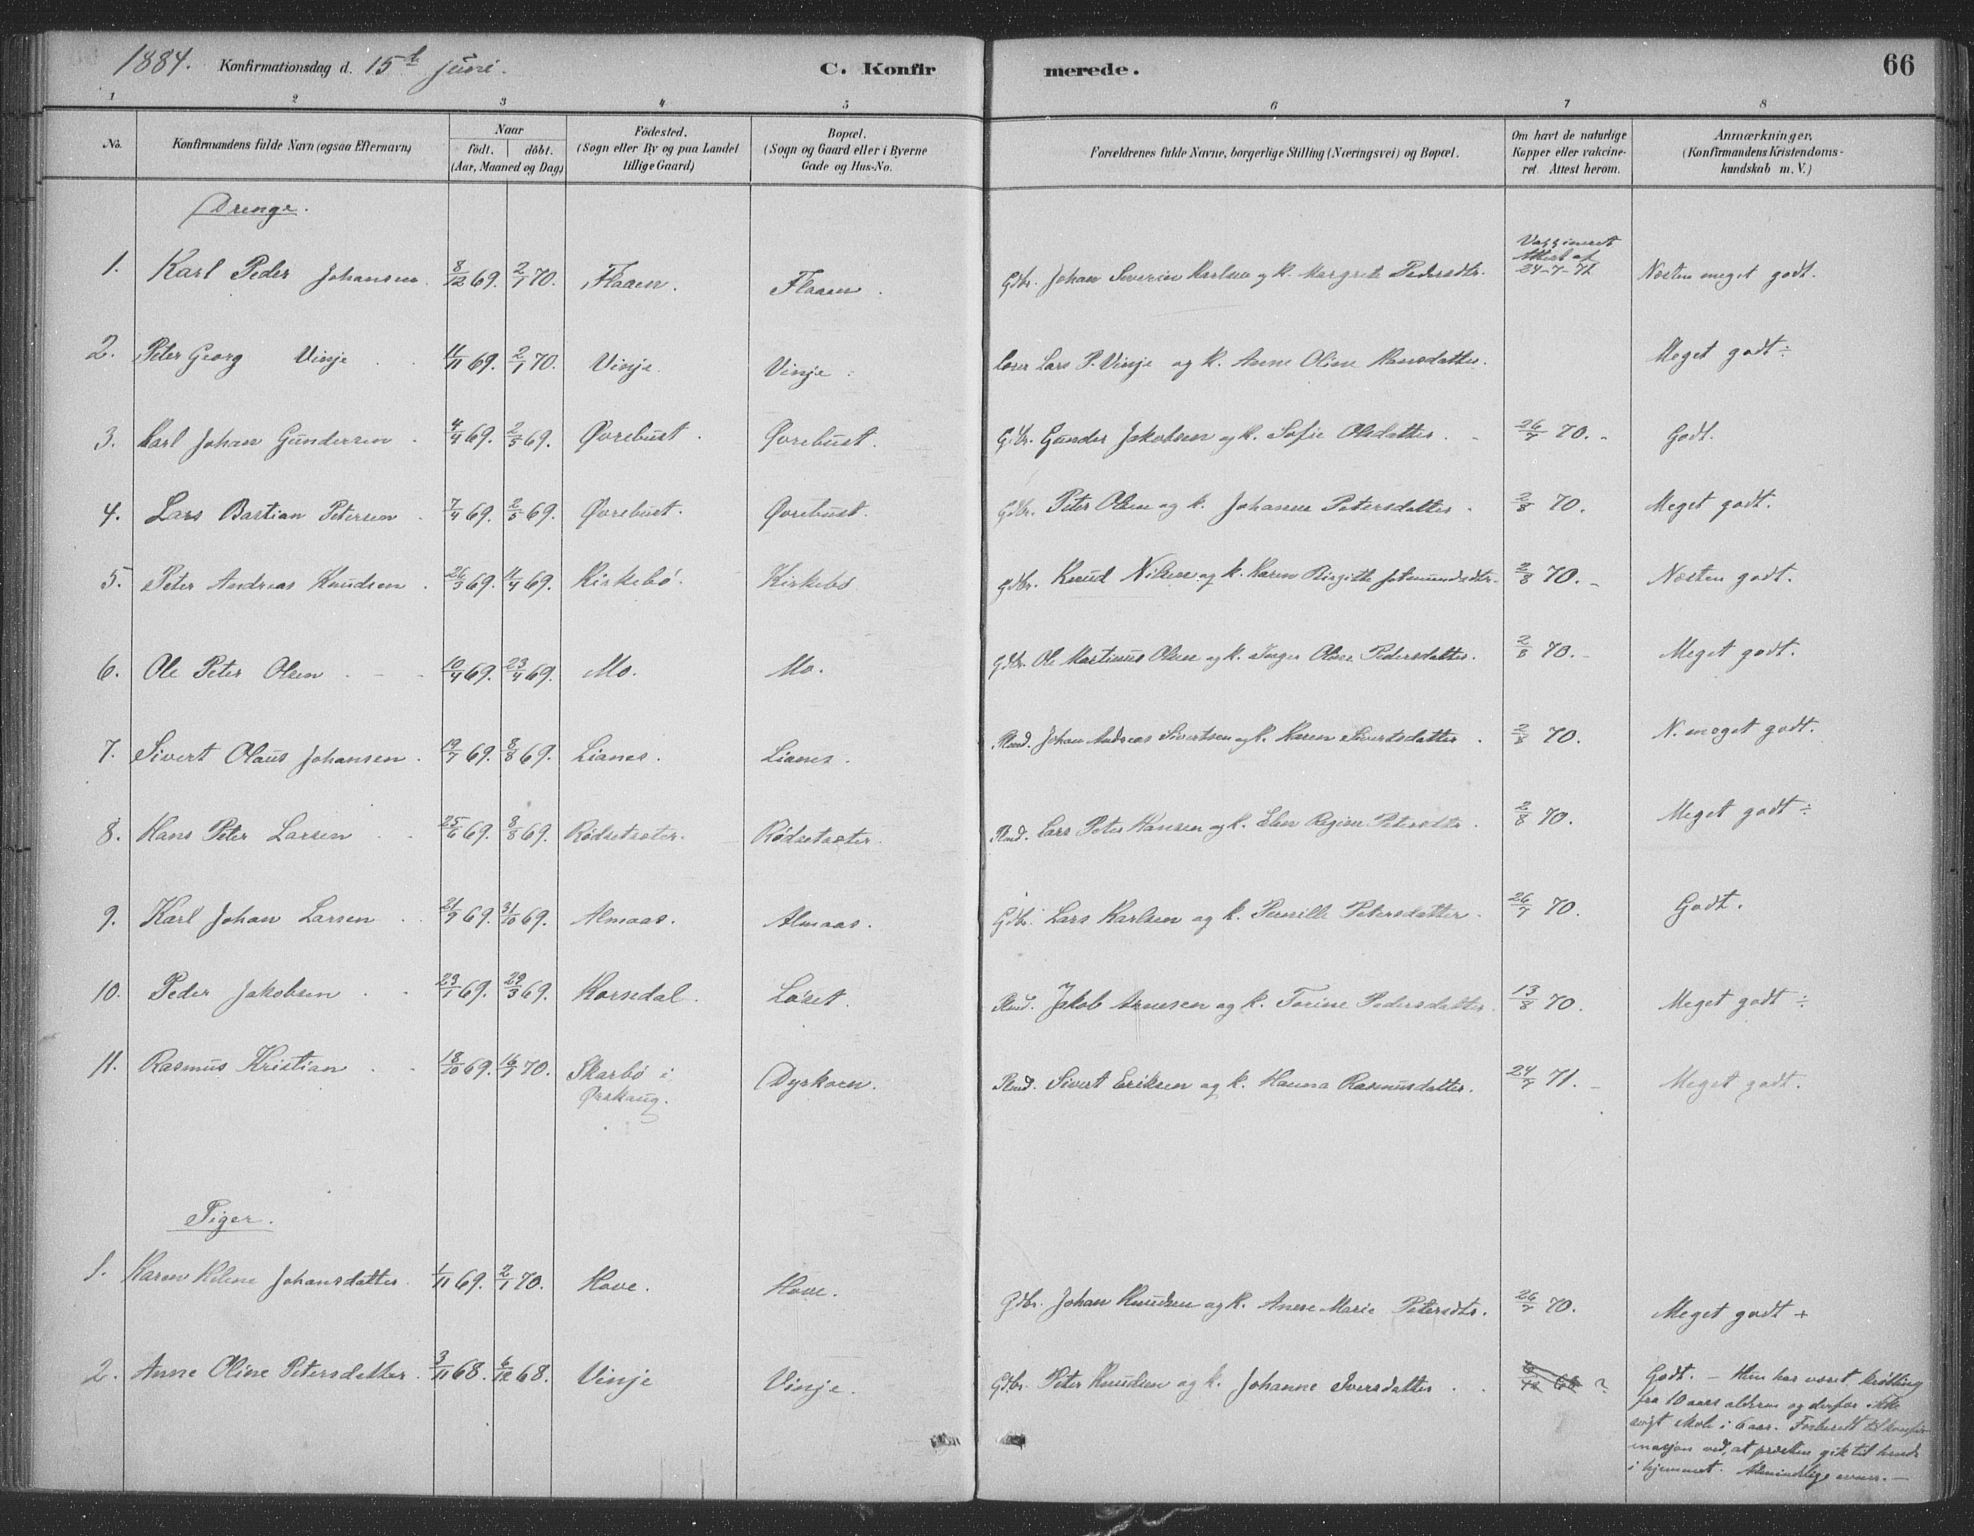 1884. Konfirmationsdag d. 15de juni. C. Konfir merede. 66
1 2 3 4 5 6 7 8
No. Konfirmandens fulde Navn (ogsaa Efternavn) Naar födt. döbt. (Aar, Maaned og Dag) Födested. (Sogn eller By og paa Landet tillige Gaard) Bopæl. (Sogn og Gaard eller i Byerne Gade og Hus-No. Forældrenes fulde Navne, borgerlige Stilling (Næringsvei) og Bopæl. Om havt de naturlige Kopper eller vakcineret. Attest herom. Anmærkninger. (Konfirmandens Kristendomskundskab m. V.)
Drenge.
1. Karl Peder Johansen 8/12 69. 2/1 70. Flaaen. Flaaen. Gdbr. Johan Severin Karlsen og k. Margrete Pedersdtr. Vaxsineret Attest af 24-7-71 Næsten meget godt.
2. Peter Georg Vinje 11/11 69. 2/1 70. Vinje. Vinje. Lars P. Vinje og k. Anne Oline Hansdatter. Meget godt ÷
3. Karl Johan Gundersen 4/4 69. 2/5 69. Øvrebust. Øvrebust. Gdbr. Gunder Jakobsen og k. Sofie Olsdatter. 26/7 70. Godt.
4. Lars Bastian Petersen 7/4 69. 2/5 69. Øvrebust. Øvrebust. Gdbr. Peter Olsen og k. Johanne Petersdatter. 2/8 70. Meget godt.
5. Peter Andreas Knudsen 26/3 69. 11/4 69. Kirkebø. Kirkebø. Gdbr. Knud Nilsen og k. Karen Birgitte 2/8 70. Næsten godt.
6. Ole Peter Olsen 10/4 69. 23/4 69. Mo. Mo. Gdbr. Ole Martinus Olsen og k. Inger Oline Pedersdatter. 2/8 70. Meget godt.
7. Sivert Olaus Johansen. 19/7 69. 8/8 69. Lianes. Lianes. Plad. Johan Andreas Sivertsen og k. Karen Sivertsdatter. 2/8 70. N. meget godt.
8. Hans Peter Larsen 25/6 69. 8/8 69. Rødsetsæter. Rødsetsæter. Plad. Lars Peter Hansen og k. Elen Regine Petersdtr. 2/8 70. Meget godt ÷
9. Karl Johan Larsen 21/9 69. 31/10 69. Almaas. Almaas. Gdbr. Lars Karlsen og k. Pernille Petersdatter. 26/7 70. Godt.
10. Peder Jakobsen 29/1 69. 29/3 69. Horsedal. Løset. Plad. Jakob Arnesen og k. Torine Pedersdatter. 13/8 70. Meget godt ÷
11. Rasmus Kristian 18/10 69. 16/7 70. Skarbø i Ørskaug. Dyrkorn. Plad. Sivert Eriksen og k. Hanna Rasmusdatter. 24/7 71. Meget godt.
Piger.
1. Karen Heline Johansdatter. 1/11 69. 2/1 70. Hove. Hove. Gdbr. Johan Knudsen og k. Anne Marie Petersdtr. 26/7 70. Meget godt +
2. Anne Oline Petersdatter. 3/11 68. 6/12 68. Vinje Vinje. Gdbr. Peter Knudsen og k. Johanne Iversdatter. ? Godt. — Hun har været
fra 10 aars alderen og derfor ikke
søgt skole i 6 aar. Forberedt til konfir
masjon ved, at præsten gik til hende
i hjemmet. Almindelige evner. —